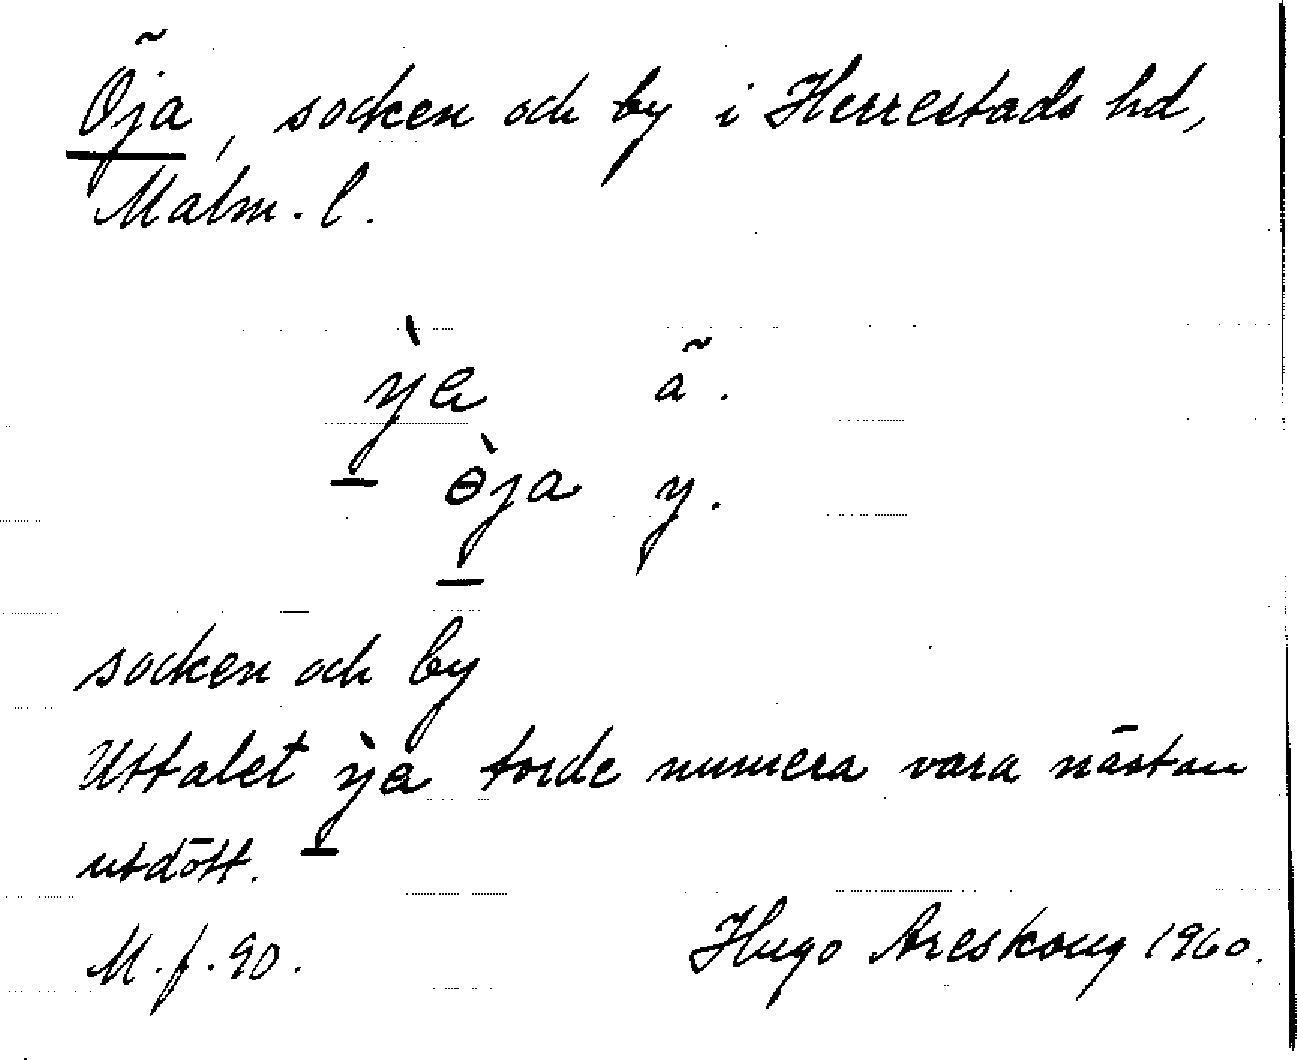 Öja, socken och by i Herrestads hd,
Malm. l.
ỳa ä.
òja y.
socken och by
Uttalet ỳa torde numera vara nästan
utdött.
M. f. 90. Hugo Areskoug 1960.